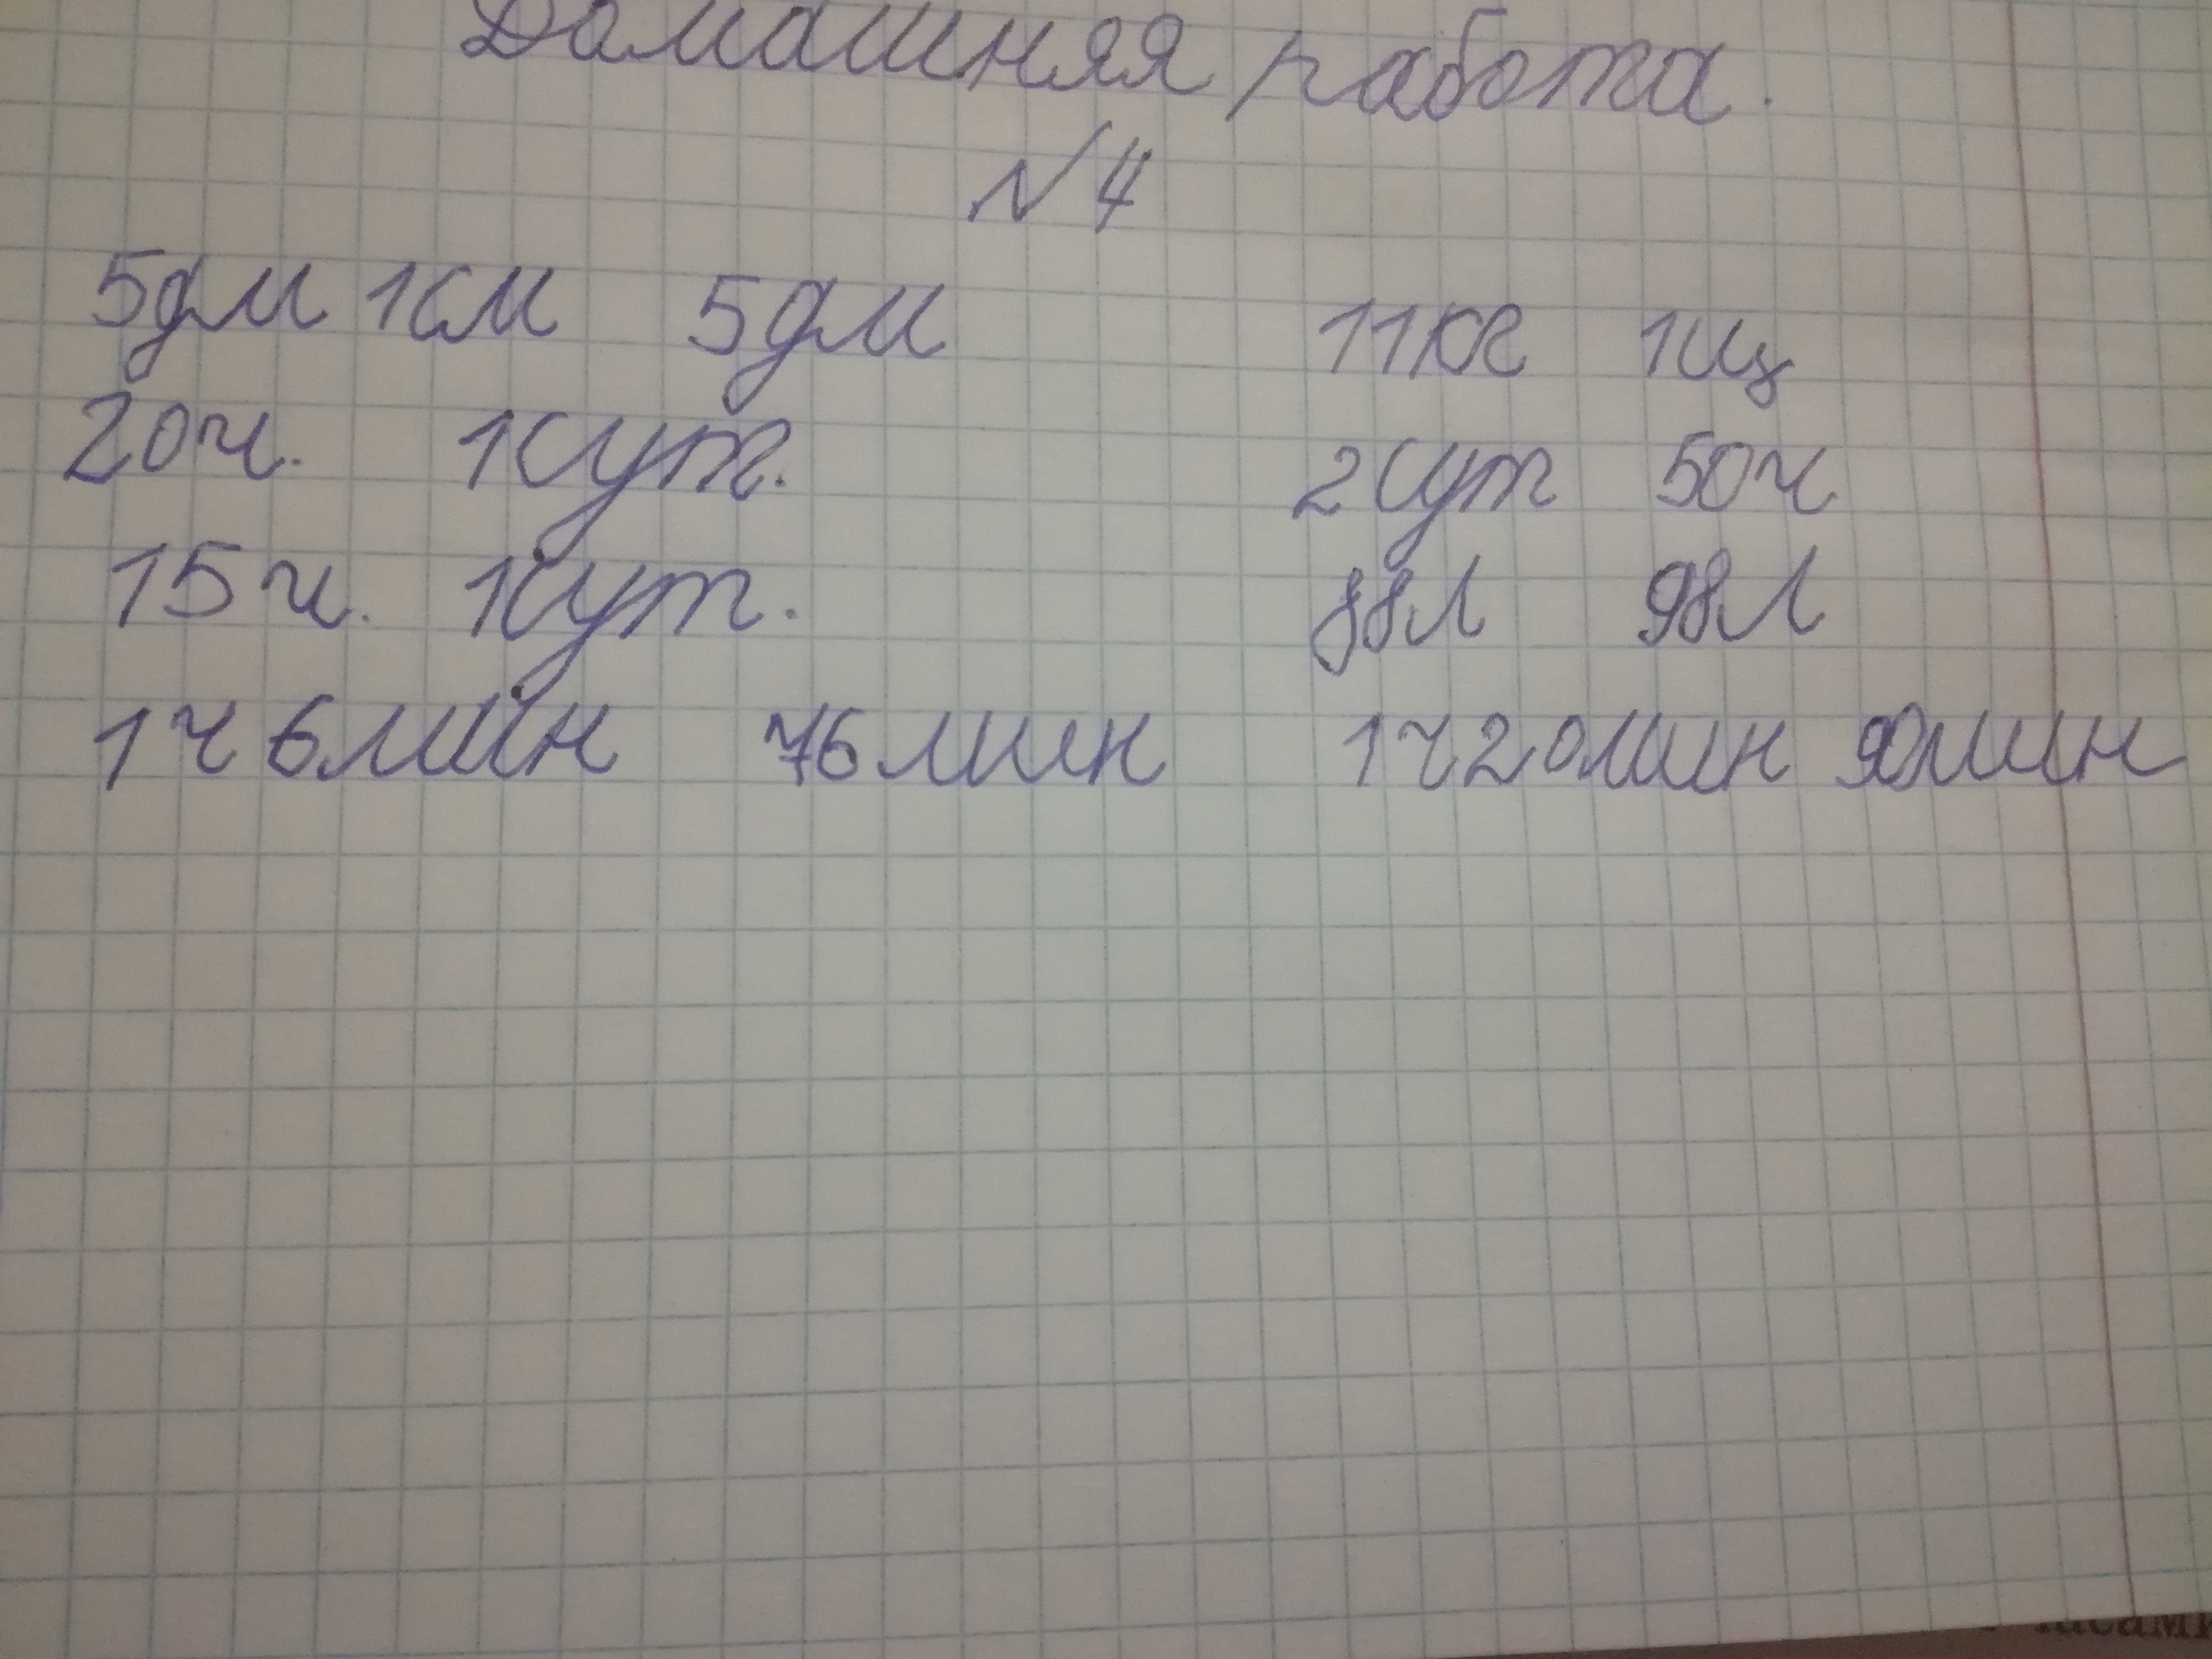 Домашняя работа.
№4
5дм 1см 5дм 11кг 1ц
20ч. 1сут. 2сут 50ч
15ч. 1сут. 88л 98л
1ч 6мин 76мин 1ч20мин 90мин
часами